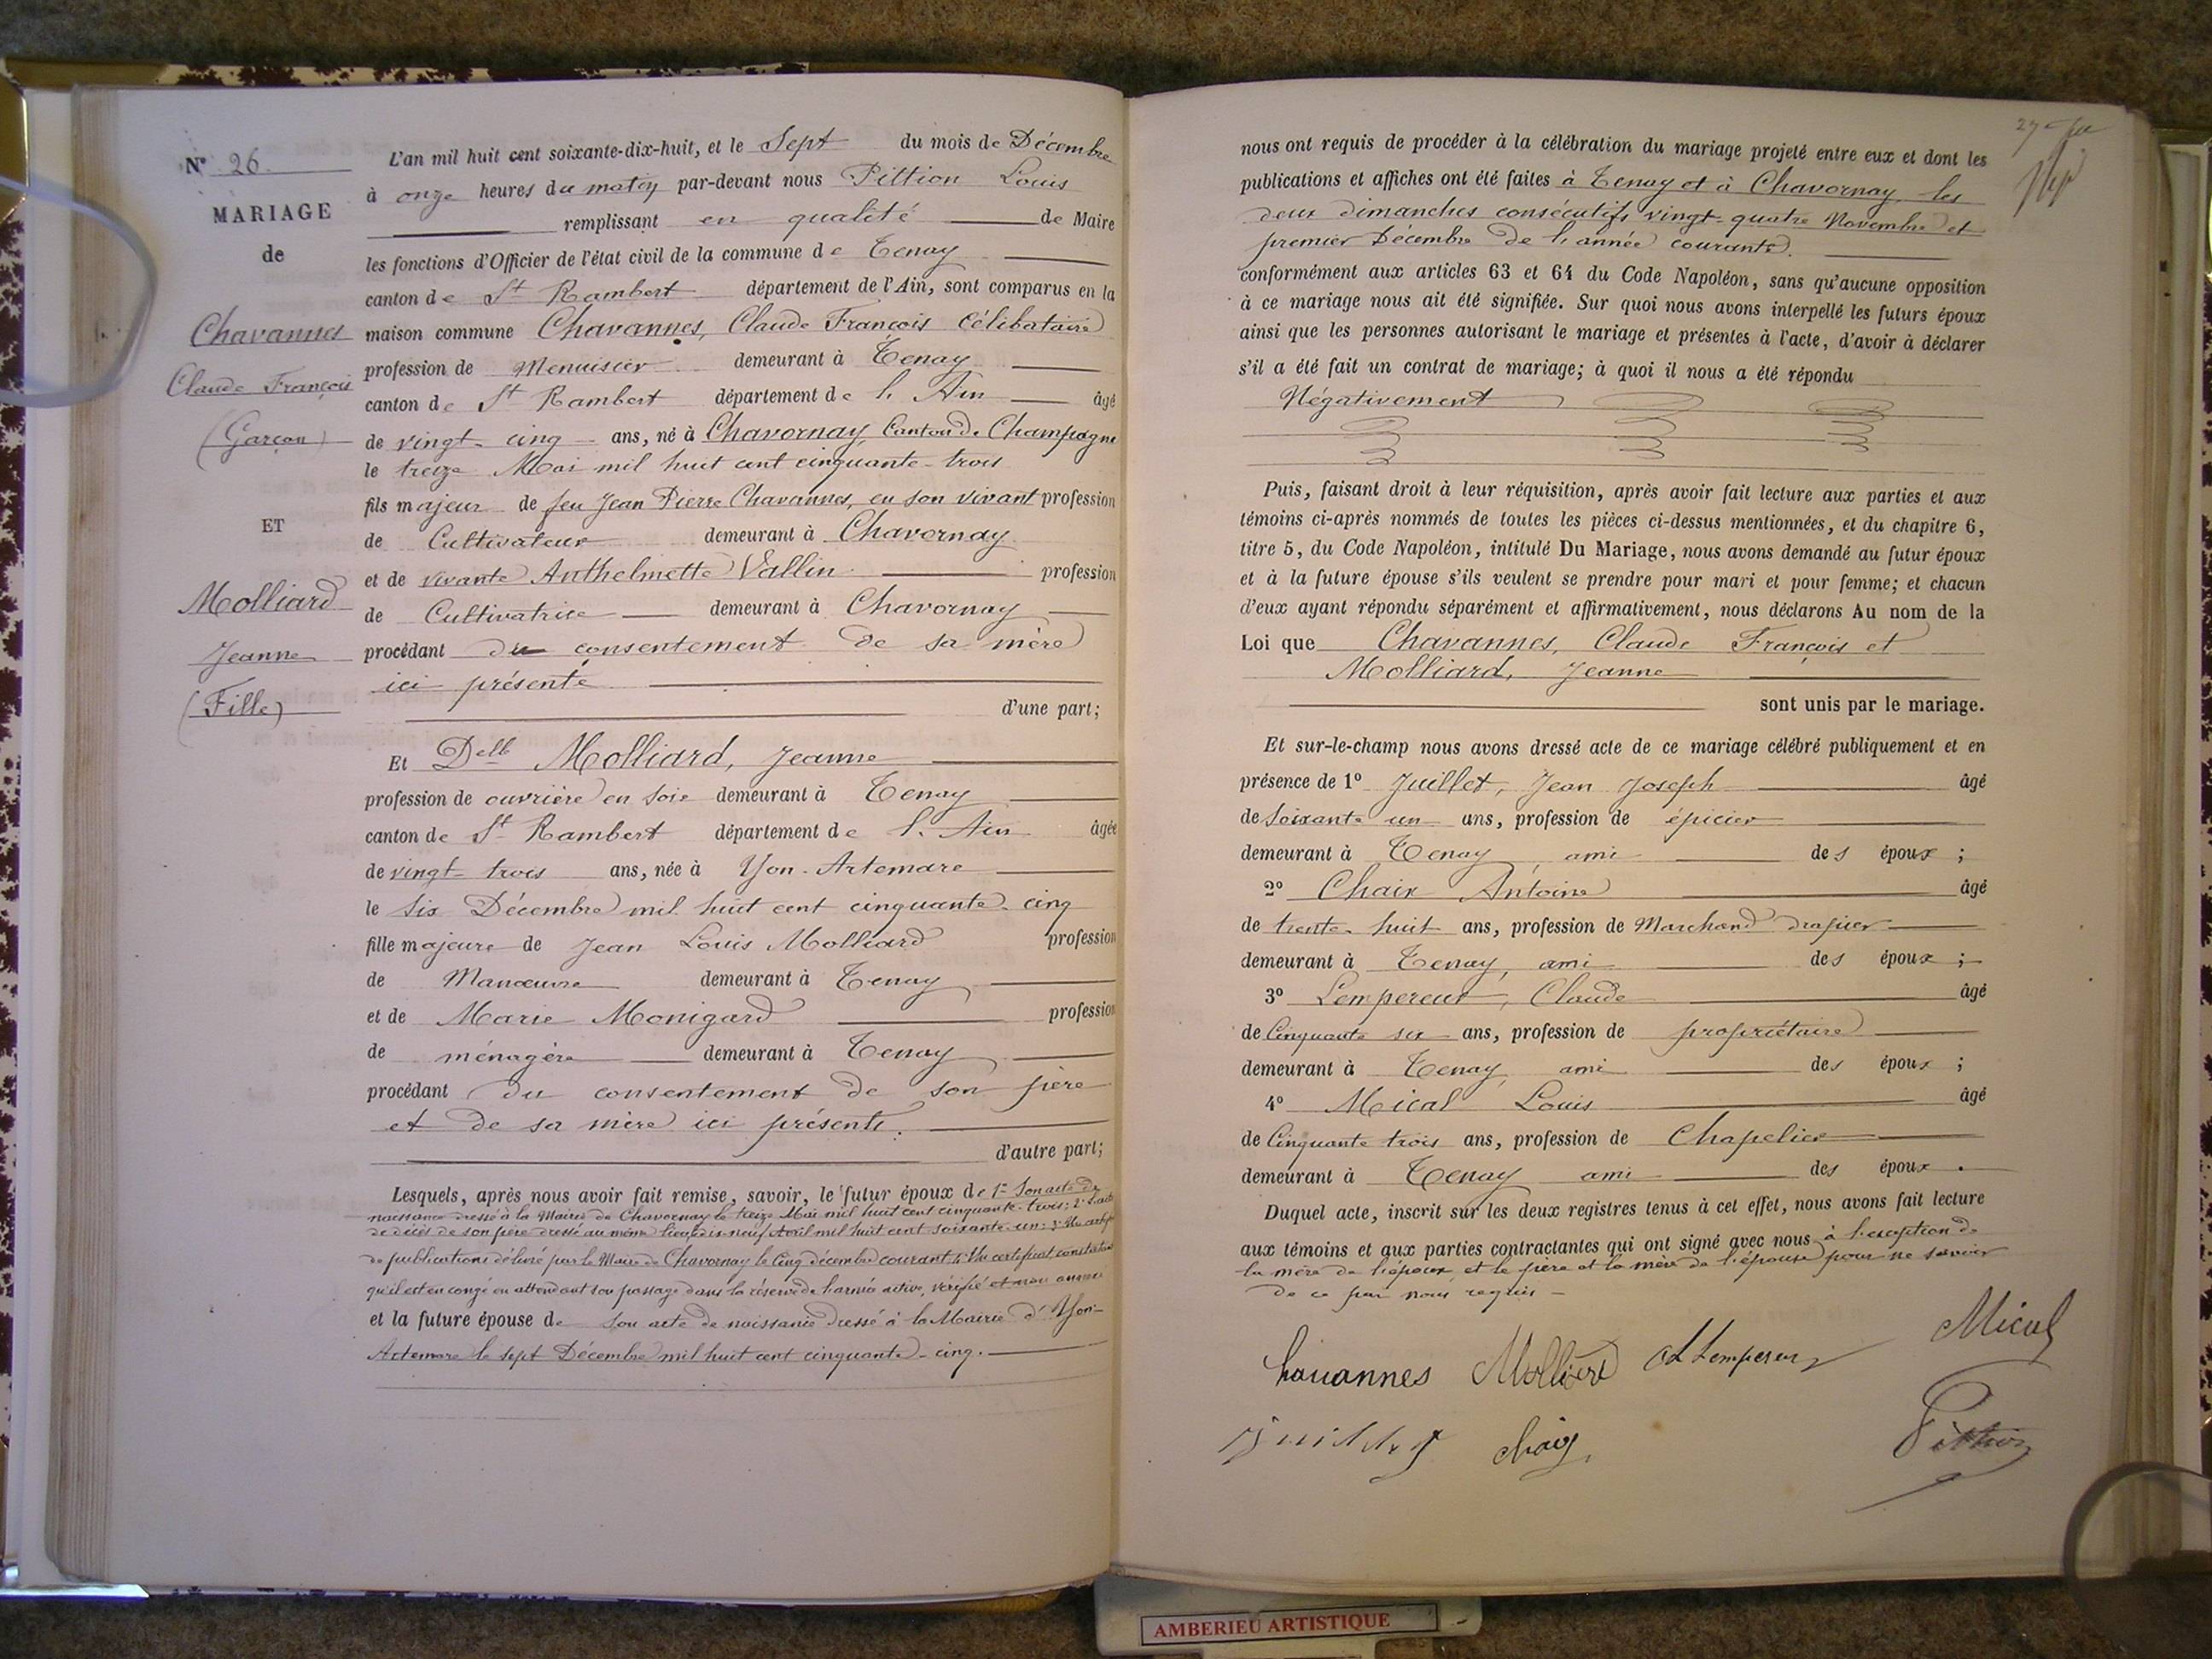 N° 26.
MARIAGE
de
Chavannes
Claude François
(Garçon)
ET
Molliard
Jeanne
(Fille)
L'an mil huit cent soixante-dix-huit, et le Sept du mois de Décembre
à onze heures du matin par-devant nous Pittion Louis
remplissant en qualité de Maire
les fonctions d'Officier de l'état civil de la commune de Tenay
canton de St Rambert département de l'Ain, sont comparus en la
maison commune Chavannes, Claude François Célibataire
profession de Menuisier demeurant à Tenay
canton de St Rambert département de l'Ain âgé
de vingt-cinq ans, né à Chavornay, Canton de Champagne
le treize Mai mil huit cent cinquante-trois
fils majeur de feu Jean Pierre Chavannes, en son vivant profession
de Cultivateur demeurant à Chavornay
et de vivante Anthelmette Vallin profession
de Cultivatrice demeurant à Chavornay
procédant du consentement de sa mère
ici présente
d'une part;
Et Delle Molliard, Jeanne
profession de ouvrière en soie demeurant à Tenay
canton de St Rambert département de l'Ain âgée
de vingt-trois ans, née à Yon-Artemare
le six Décembre mil huit cent cinquante-cinq
fille majeure de Jean Louis Molliard profession
de Manœuvre demeurant à Tenay
et de Marie Monigard profession
de ménagère demeurant à Tenay
procédant du consentement de son père
et de sa mère ici présents.
d'autre part;
Lesquels, après nous avoir fait remise, savoir, le futur époux de 1° Son acte de
naissance dressé à la Mairie de Chavornay le treize Mai mil huit cent cinquante-trois; 2° l'acte
de décès de son père dressé au même lieu le dix-neuf Avril mil huit cent soixante-un; 3° Un certificat
de publications délivré par le Maire de Chavornay le Cinq décembre courant; 4° Un certificat constatant
qu'il est en congé en attendant son passage dans la réserve de l'armée active, vérifié et non annexé
et la future épouse de son acte de naissance dressé à la Mairie d'Yon-
Artemare le sept Décembre mil huit cent cinquante-cinq.
nous ont requis de procéder à la célébration du mariage projeté entre eux et dont les
publications et affiches ont été faites à Tenay et à Chavornay, les
deux dimanches consécutifs vingt-quatre Novembre et
premier Décembre de l'année courante.
conformément aux articles 63 et 64 du Code Napoléon, sans qu'aucune opposition
à ce mariage nous ait été signifiée. Sur quoi nous avons interpellé les futurs époux
ainsi que les personnes autorisant le mariage et présentes à l'acte, d'avoir à déclarer
s'il a été fait un contrat de mariage; à quoi il nous a été répondu
Négativement
Puis, faisant droit à leur réquisition, après avoir fait lecture aux parties et aux
témoins ci-après nommés de toutes les pièces ci-dessus mentionnées, et du chapitre 6,
titre 5, du Code Napoléon, intitulé Du Mariage, nous avons demandé au futur époux
et à la future épouse s'ils veulent se prendre pour mari et pour femme; et chacun
d'eux ayant répondu séparément et affirmativement, nous déclarons Au nom de la
Loi que Chavannes, Claude François et
Molliard, Jeanne
sont unis par le mariage.
Et sur-le-champ nous avons dressé acte de ce mariage célébré publiquement et en
présence de 1° Juillet, Jean Joseph âgé
de soixante un ans, profession de épicier
demeurant à Tenay, ami des époux;
2° Chaix Antoine âgé
de trente-huit ans, profession de Marchand drapier
demeurant à Tenay, ami des époux;
3° Lempereur, Claude âgé
de Cinquante six ans, profession de propriétaire
demeurant à Tenay ami des époux;
4° Mical Louis âgé
de Cinquante trois ans, profession de Chapelier
demeurant à Tenay ami des époux.
Duquel acte, inscrit sur les deux registres tenus à cet effet, nous avons fait lecture
aux témoins et aux parties contractantes qui ont signé avec nous à l'exception de
la mère de l'époux, et le père et la mère de l'épouse pour ne savoir
de ce par nous requis
Chavannes Mollierd Lempereur Mical
juillet Chaix Pittion
AMBERIEU ARTISTIQUE